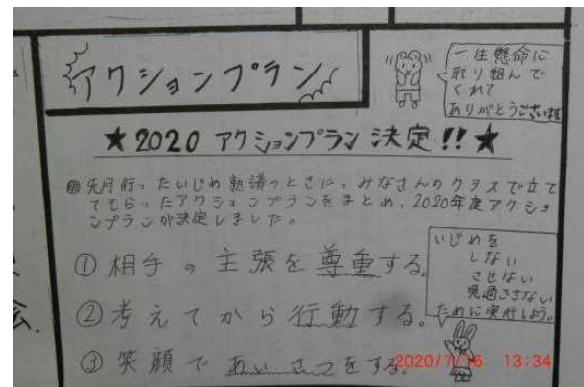 アクションプラン
一生懸命に
取り組んで
くれて
ありがとうございます
★2020 アクションプラン決定!!★
先月行ったいじめ熟議のときに、みなさんのクラスで立て
てもらったアクションプランをまとめ、2020年度アクショ
ンプランが決定しました。
①相手の主張を尊重する。
②考えてから行動する。
③笑顔であいさつをする。
いじめを
しない
させない
見過ごさない
ために実行しよう。
2020/7/16 13:34
会.